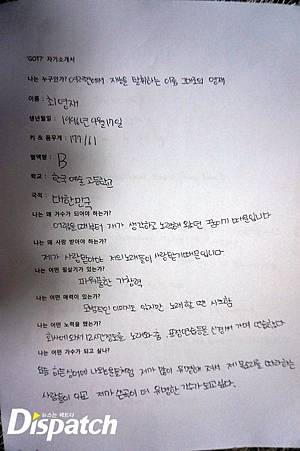 'GOT7' 자기소개서
나는 누구인가? 여러면에서 재능을 발휘하는 이름 그대로의 영재
이름 : 최영재
생년월일 : 1996년 9월 17일
키 & 몸무게 : 177 / 61
혈액형 : B
학교 : 한국 예술 고등학교
국적 : 대한민국
나는 왜 가수가 되어야 하는가?
어렸을 때부터 제가 생각하고 노력해 왔던 꿈이기 때문입니다
나는 왜 사랑 받아야 하는가?
제가 사랑받아야 저의 노래들이 사랑받기 때문입니다
나는 어떤 필살기가 있는가?
파워풀한 가창력
나는 어떤 매력이 있는가?
모범적인 이미지도 있지만 노래할 땐 시크함
나는 어떤 노력을 했는가?
회사에 와서 12시 연습하고 노래와 춤, 표정연습등을 신경써 가며 연습했다
나는 어떤 가수가 되고 싶나?
요즘 제가 많이 유명해 져서 제 목소리를 따라하는
사람들이 있고 제가 더 유명한 가수가 되고싶다.
뉴스는 팩트다
Dispatch